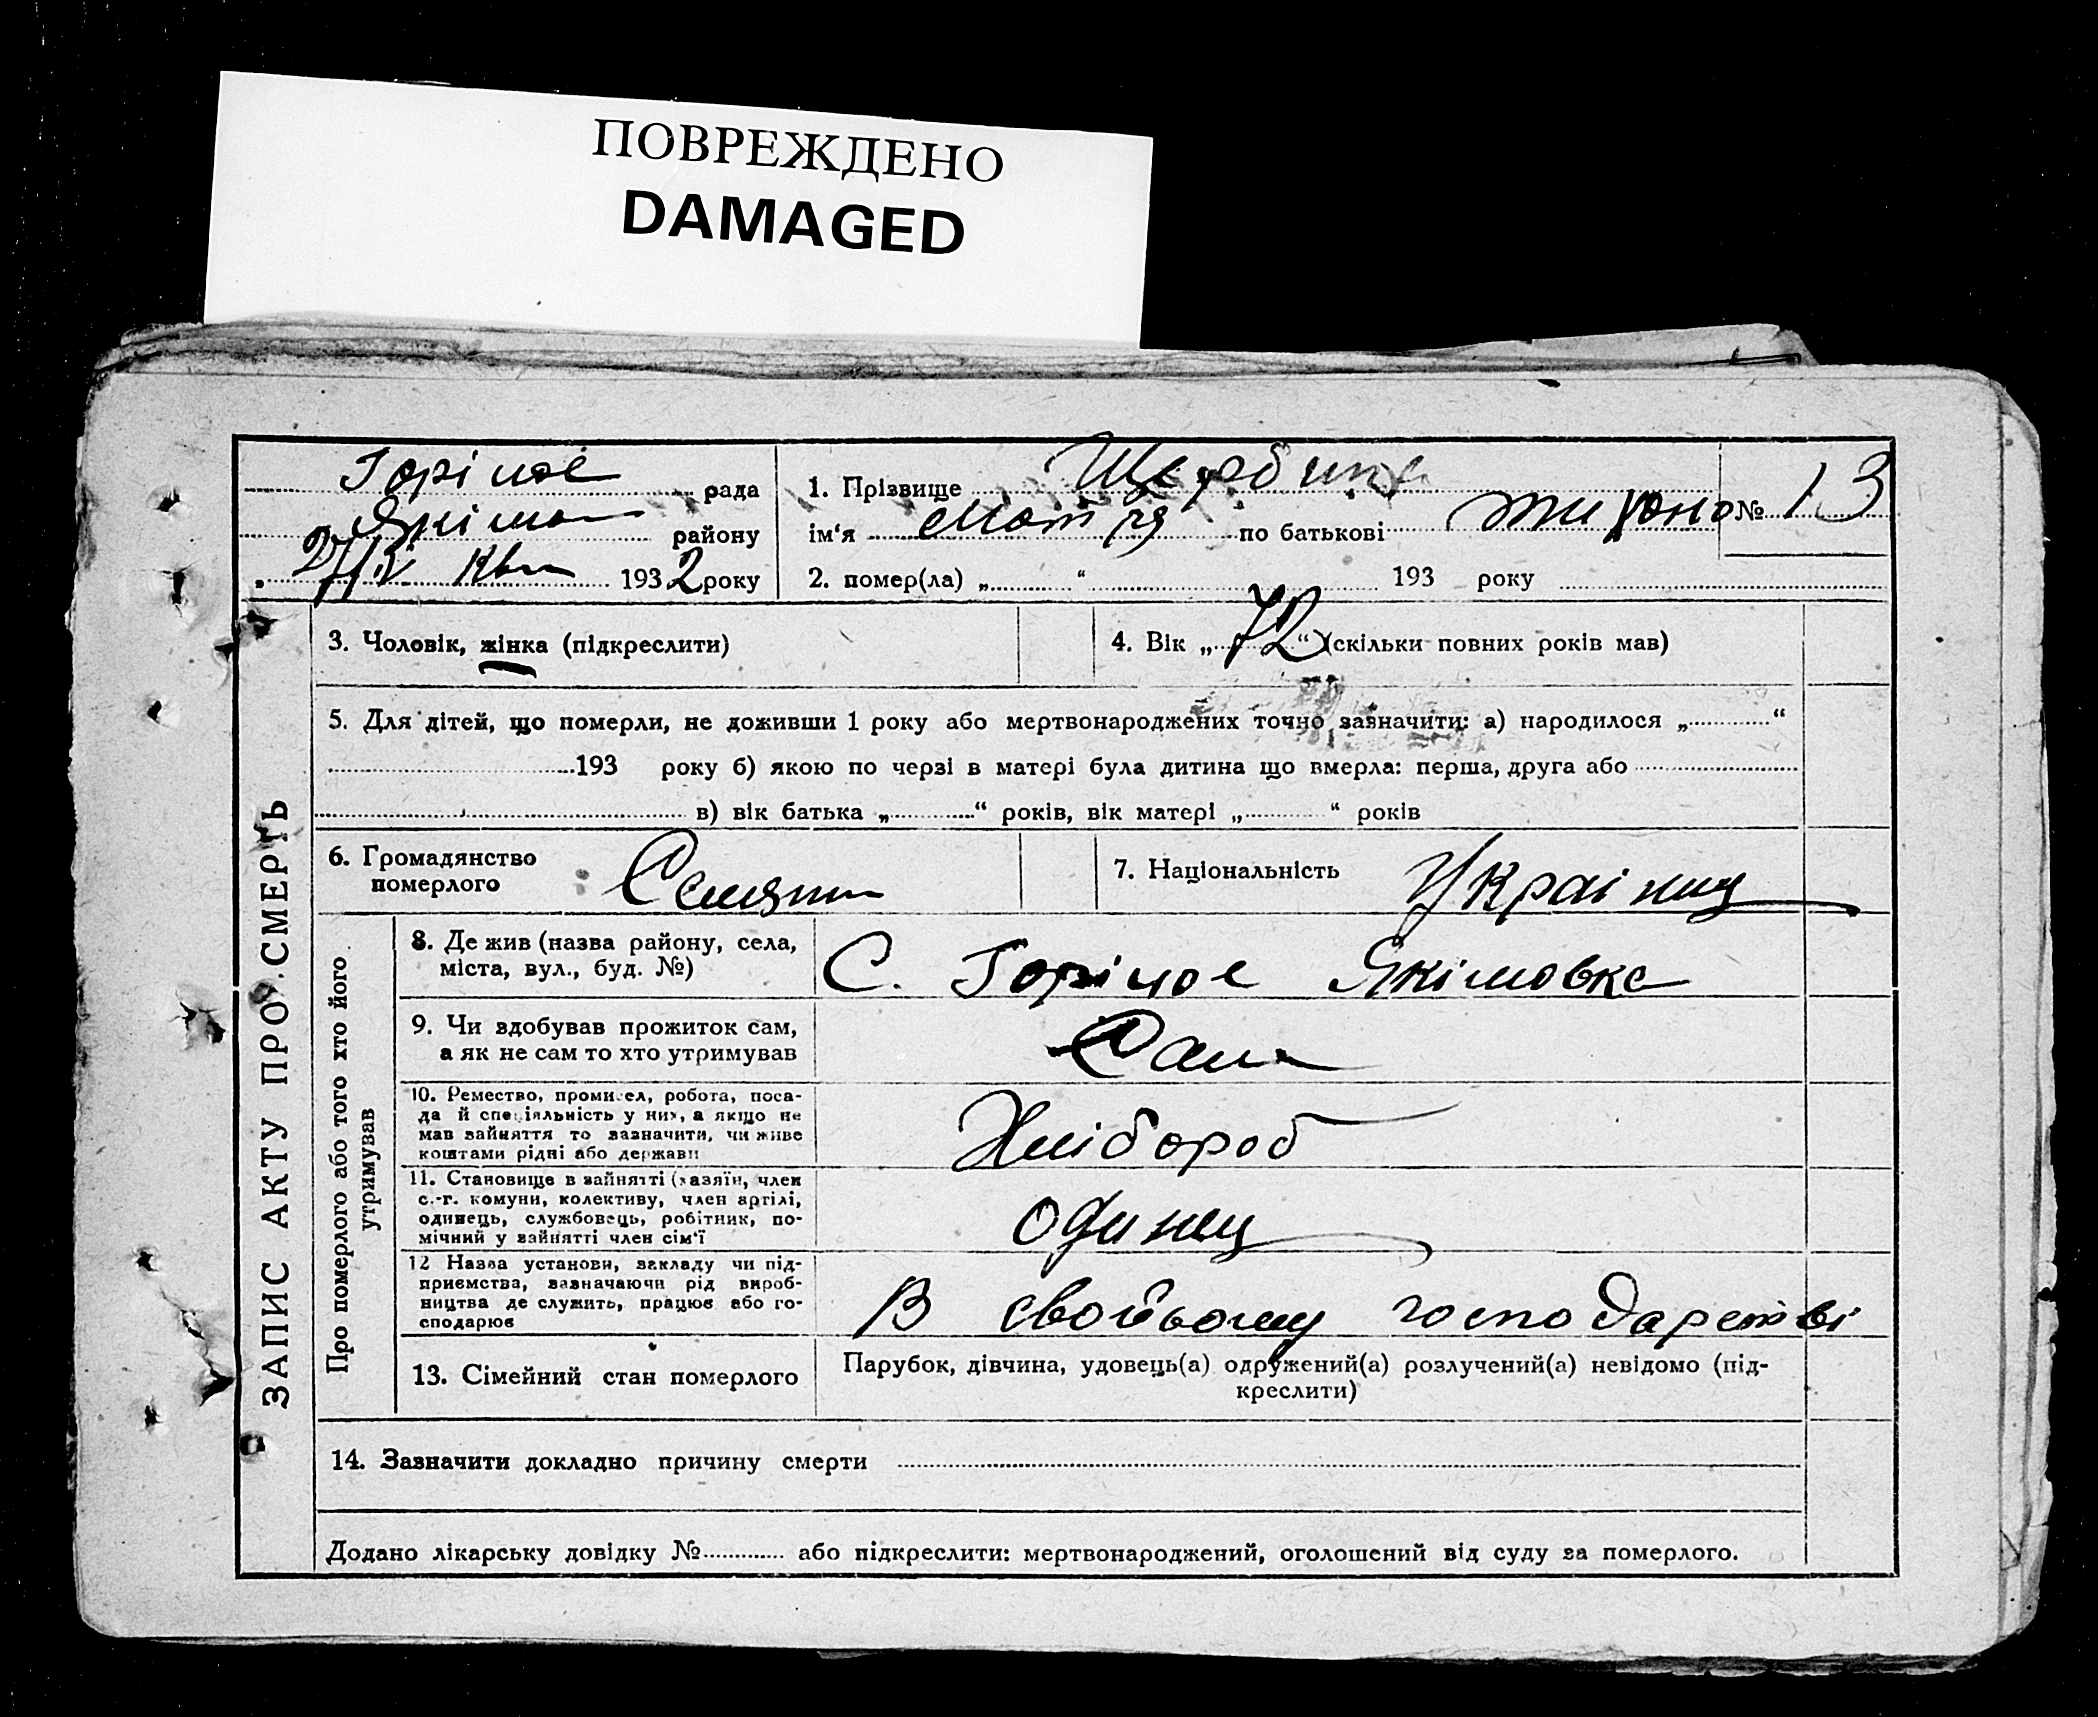 ПОВРЕЖДЕНО
DAMAGED
Горіное рада
Якімо району
27/IV Квіт 1932 року
1. Прізвище Щербина
ім‘я Мотря по батькові Тихоно № 13
2. помер(ла) „ “ 193 року
3. Чоловік, жінка (підкреслити)
4. Вік „72“ (скільки повних років мав)
5. Для дітей, що померли, не доживши 1 року або мертвонароджених точно зазначити: а) народилося „ “
193 року б) якою по черзі в матері була дитина що вмерла: перша, друга або
в) вік батька „ “ років, вік матері „ “ років
6. Громадянство
померлого Селянин
7. Національність Українец
ЗАПИС АКТУ ПРО СМЕРТЬ
Про померлого або того хто його
утримував
8. Де жив (назва району, села,
міста, вул., буд. №)
С. Горіное Якімовка
9. Чи здобував прожиток сам,
а як не сам то хто утримував
Сам
10. Ремество, промисел, робота, поса-
да й спеціяльність у них, а якщо не
мав зайняття то зазначити, чи живе
коштами рідні або держави
Хлібороб
11. Становище в зайнятті (хазяїн, член
с.-г. комуни, колективу, член артілі,
одинець, службовець, робітник, по-
мічний у зайнятті член сім‘ї
одинец
12 Назва установи, закладу чи під-
приємства, зазначаючи рід вироб-
ництва де служить, працює або го-
сподарює
В своїьому господарстві
13. Сімейний стан померлого
Парубок, дівчина, удовець(а) одружений(а) розлучений(а) невідомо (під-
креслити)
14. Зазначити докладно причину смерти
Додано лікарську довідку № або підкреслити: мертвонароджений, оголошений від суду за померлого.